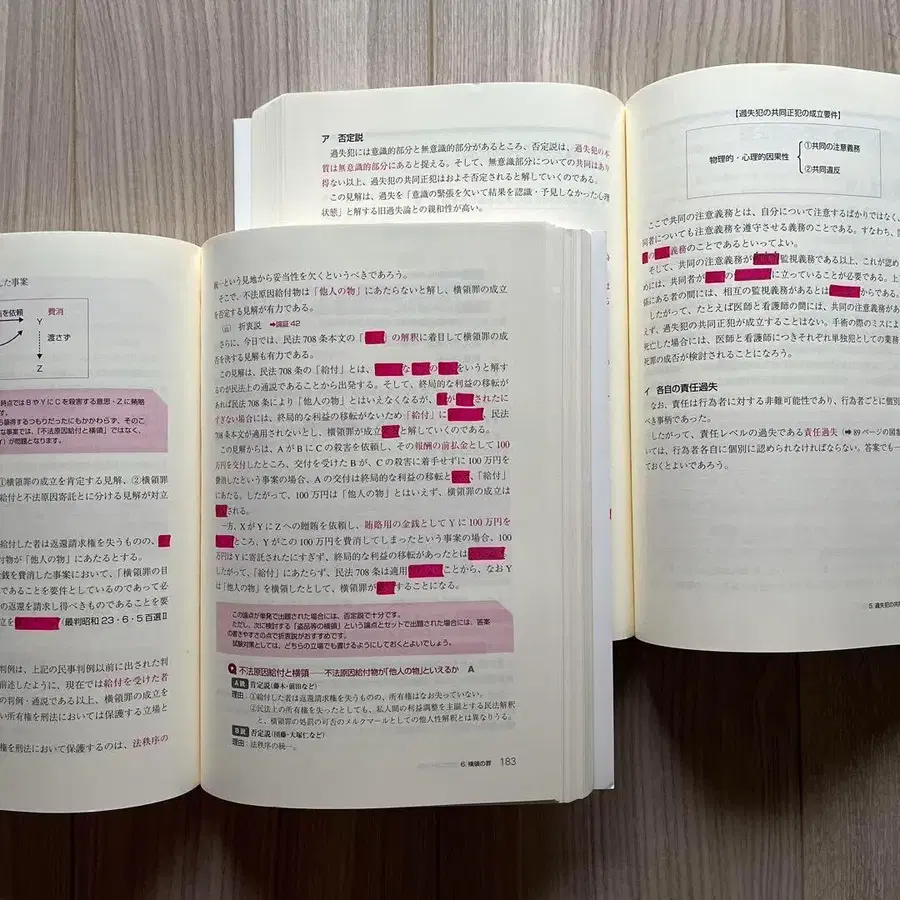 ア 否定説
過失犯には意識的部分と無意識的部分があるところ、否定説は、過失犯の本
質は無意識的部分にあると捉える。そして、無意識部分についての共同はあり
得ない以上、過失犯の共同正犯はおよそ否定されると解していくのである。
この見解は、過失を「意識の緊張を欠いて結果を認識・予見しなかった心理
状態」と解する旧過失論との親和性が高い。
【過失犯の共同正犯の成立要件】
物理的・心理的因果性
①共同の注意義務
②共同違反
ここで共同の注意義務とは、自分について注意するばかりではなく、
同者についても注意義務を遵守させる義務のことである。すなわち、
の 義務のことであるといってよい。
そして、共同の注意義務が 監視義務である以上、これが認め
めには、共同者が の に立っていることが必要である。上
係にある者の間には、相互の監視義務があるとは からである。
したがって、たとえば医師と看護師の間には、共同の注意義務があ
えず、過失犯の共同正犯が成立することはない。手術の際のミスによ
死亡した場合には、医師と看護師につきそれぞれ単独犯としての業務
死罪の成否が検討されることになろう。
イ 各自の責任過失
なお、責任は行為者に対する非難可能性であり、行為者ごとに個別
べき事柄であった。
したがって、責任レベルの過失である責任過失(➡89ページの図
いては、行為者各自に個別に認められなければならない。答案でも一
ておくとよいであろう。
5 過失犯の共
した事案
を依頼
費消
Y
渡さず
Z
時点ではBやYにCを殺害する意思・Zに賄賂
す。
ら領得するつもりだったにもかかわらず、そのこ
な事案では、「不法原因給付と横領」ではなく、
)が問題となります。
①横領罪の成立を肯定する見解、②横領罪
給付と不法原因寄託とに分ける見解が対立
給付した者は返還請求権を失うものの、
付物が「他人の物」にあたるとする。
金銭を費消した事案において、「横領罪の目
であることを要件としているのであって必
の返還を請求し得べきものであることを要
立を (最判昭和23・6・5百選Ⅱ
判例は、上記の民事判例以前に出された判
前述したように、現在では給付を受けた者
の判例・通説である以上、横領罪の成立を
い所有権を刑法においては保護する立場と
権を刑法において保護するのは、法秩序の
統一という見地から妥当性を欠くというべきであろう。
そこで、不法原因給付物は「他人の物」にあたらないと解し、横領罪の成立
を否定する見解が有力である。
(ⅲ) 折衷説 ➡論証42
さらに、今日では、民法708条本文の「 」の解釈に着目して横領罪の成
否を決する見解も有力である。
この見解は、民法708条の「給付」とは、 な の をいうと解す
るのが民法上の通説であることから出発する。そして、終局的な利益の移転が
あれば民法708条により「他人の物」とはいえなくなるが、 が されたに
すぎない場合には、終局的な利益の移転がないため「給付」に 、民法
708条本文が適用されないとし、横領罪が成立 と解していくのである。
この見解からは、AがBにCの殺害を依頼し、その報酬の前払金として100
万円を交付したところ、交付を受けたBが、Cの殺害に着手せずに100万円を
費消したという事案の場合、Aの交付は終局的な利益の移転と 、「給付」
にあたる。したがって、100万円は「他人の物」とはいえず、横領罪の成立は
される。
一方、XがYにZへの贈賄を依頼し、賄賂用の金銭としてYに100万円を
ところ、Yがこの100万円を費消してしまったという事案の場合、100
万円はYに寄託されたにすぎず、終局的な利益の移転があったとは 。
したがって、「給付」にあたらず、民法708条は適用 ことから、なおY
は「他人の物」を横領したとして、横領罪が することになる。
この論点が単発で出題された場合には、否定説で十分です。
ただし、次に検討する「盗品等の横領」という論点とセットで出題された場合には、答案
の書きやすさの点で折衷説がおすすめです。
試験対策としては、どちらの立場でも書けるようにしておくとよいでしょう。
Q 不法原因給付と横領――不法原因給付物が「他人の物」といえるか A
A説 否定説(藤木・前田など)
理由:①給付した者は返還請求権を失うものの、所有権はなお失っていない。
②民法上の所有権を失ったとしても、私人間の利益調整を主眼とする民法解釈
と、横領罪の処罰の可否のメルクマールとしての他人性解釈とは異なりうる。
B説 否定説(団藤・大塚仁など)
理由:法秩序の統一。
6. 横領の罪 183